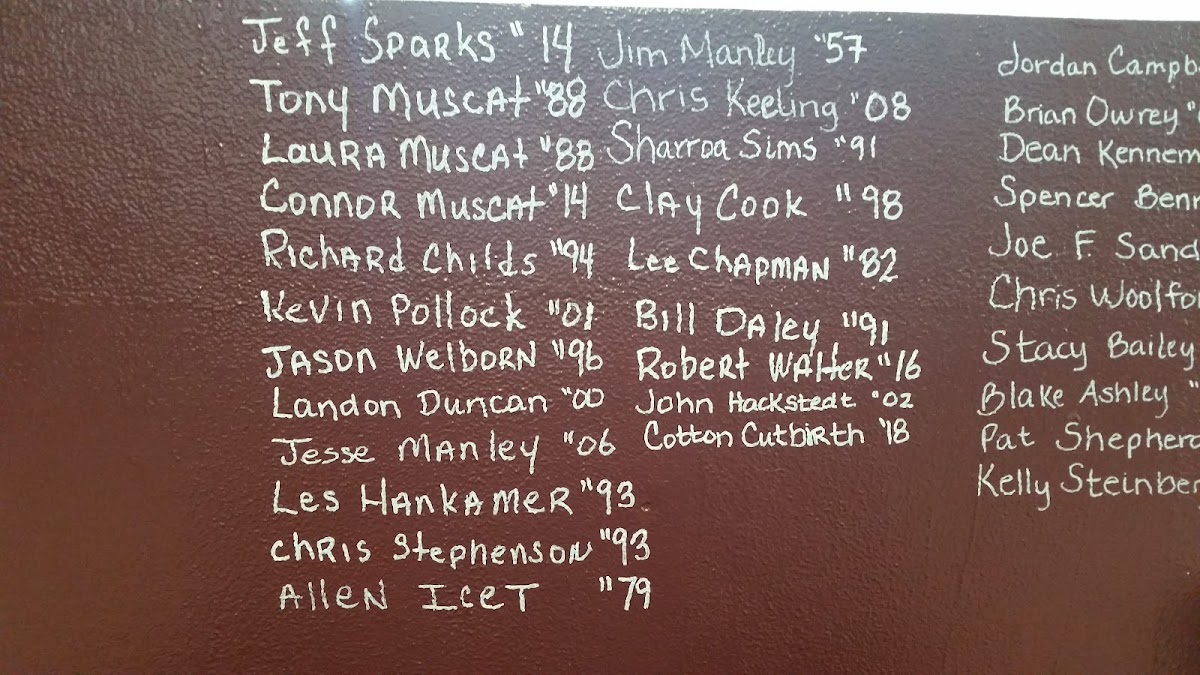 Jeff Sparks "14
Tony Muscat "88
Laura Muscat "88
Connor Muscat "14
Richard Childs "94
Kevin Pollock "01
Jason Welborn "96
Landon Duncan "00
Jesse Manley "06
Les Hankamer "93
Chris Stephenson "93
Allen Icet "79
Jim Manley "57
Chris Keeling "08
Sharroa Sims "91
Clay Cook "98
Lee Chapman "82
Bill Daley "91
Robert Walter "16
John Hackstedt "02
Cotton Cutbirth '18
Jordan Campb
Brian Owrey "
Dean Kennem
Spencer Benn
Joe F. Sand
Chris Woolfo
Stacy Bailey
Blake Ashley "
Pat Shepherd
Kelly Steinber